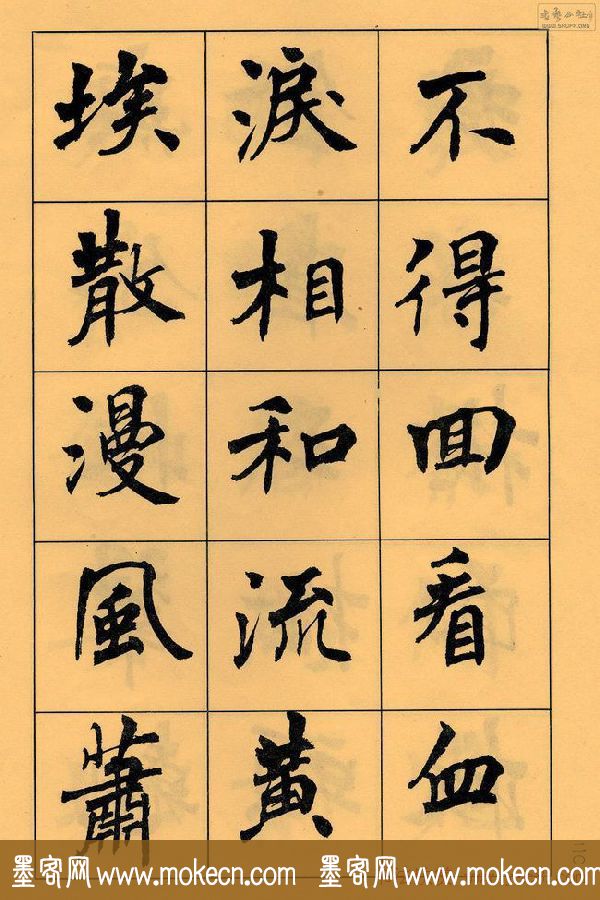 不得回看血
淚相和流黃
埃散漫風蕭
墨客网 www.mokecn.com 墨客网 www.mokecn.com